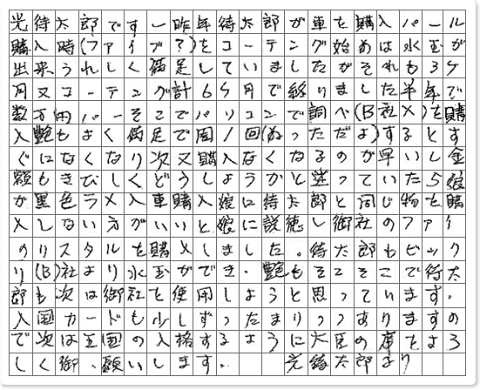 光待太郎です一昨年待太郎が車を購入パール
購入時(ファイブ?)をコーテング始めは水玉が
出来うれしく満足していましたがそれも3ケ
月又コーテング計6ケ月で終りました半年で
数万円パーそこでパソコンで調べ(B社メ)を購
入艶もよく満足で周1回(ぬっただよ)するとす
ぐになくなり次又購入なくなるのが早いし金
額もきびしくどうしようかと迷っていたら娘
が黒色ラメ入車購入娘に待太郎と同じ物を購
入しない方がいいと娘に説徳し御社のファイ
のリスタルを購入しました。待太郎もビック
リ(B)社より水玉ができ、艶もそこそこで待太
郎も次は御社を使用しようと思っています。
入国カードも少しずったまりつつありますの
で次は王国の入格するように大臣の席をよろ
しく御、願いします. 光待太郎より